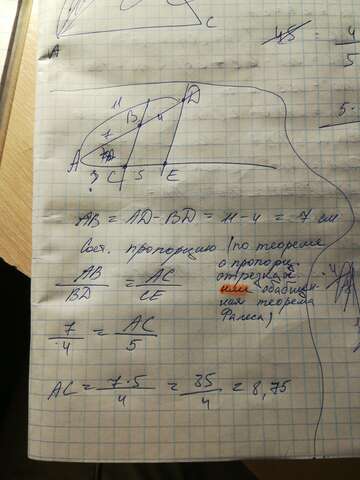 A
C
45
4
5
5.
11
D
B
4
7
A
?
C
5
E
AB = AD - BD = 11 - 4 = 7 см
Сост. пропорцию (по теореме
о пропорц.
отрезках
или обобщён-
ная теорема
Фалеса)
AB/BD = AC/CE
7/4 = AC/5
AC = 7·5/4 = 35/4 = 8,75